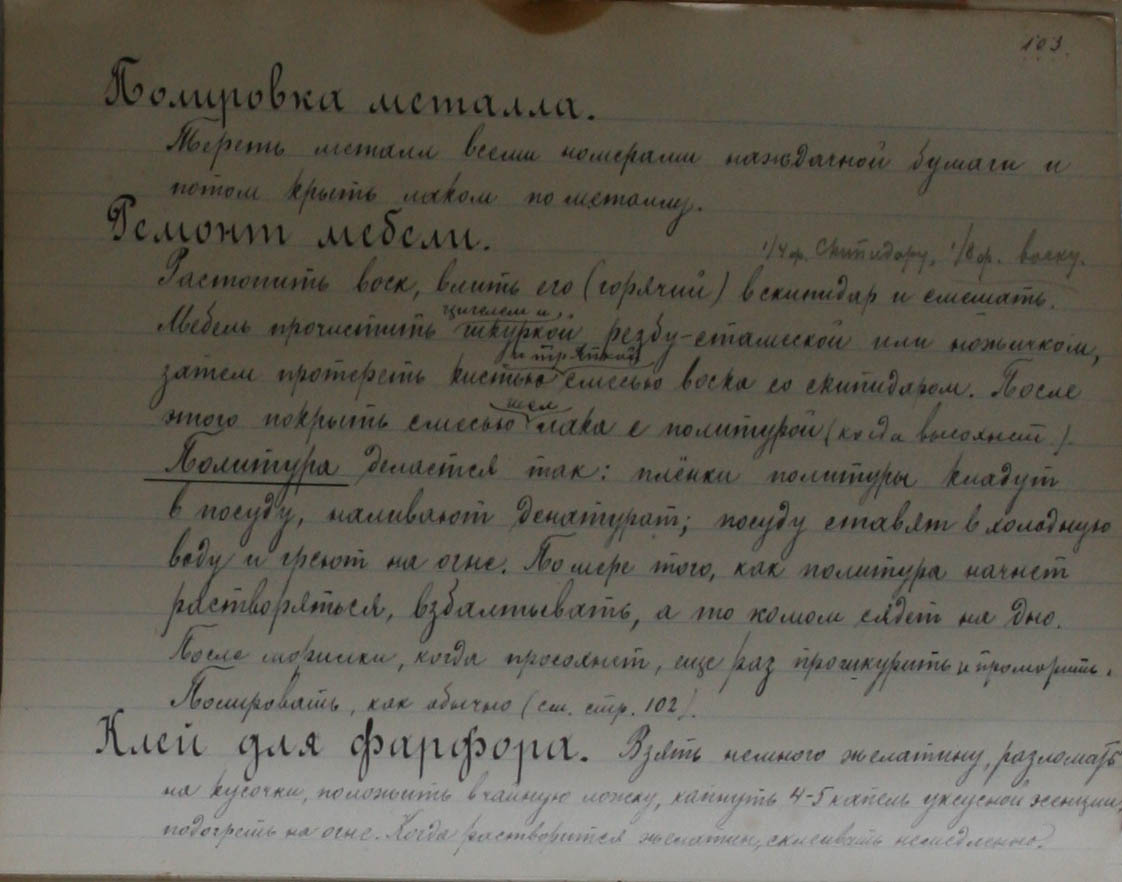 103.
Полировка металла.
Тереть металл всеми номерами наждачной бумаги и
потом крыть лаком по металлу.
Ремонт мебели.
1/4 ф. скипидару, 1/8 ф. воску.
Растопить воск, влить его (горячий) в скипидар и смешать.
цигелем и
Мебель прочистить шкуркой резбу-стамеской или ножичком,
и тряпкой
затем протереть кистью смесью воска со скипидаром. После
шел
этого покрыть смесью лака с политурой (когда высохнет.).
Политура делается так: плёнки политуры кладут
в посуду, наливают денатурат; посуду ставят в холодную
воду и греют на огне. По мере того, как политура начнет
растворяться, взбалтывать, а то комом сядет на дно.
После морилки, когда просохнет, еще раз прошкурить и проморить.
Полировать, как обычно (см. стр. 102).
Клей для фарфора. Взять немного желатину, разломать
на кусочки, положить в чайную ложку, капнуть 4-5 капель уксусной эсенции,
подогреть на огне. Когда растворится желатин, склеивать немедленно.